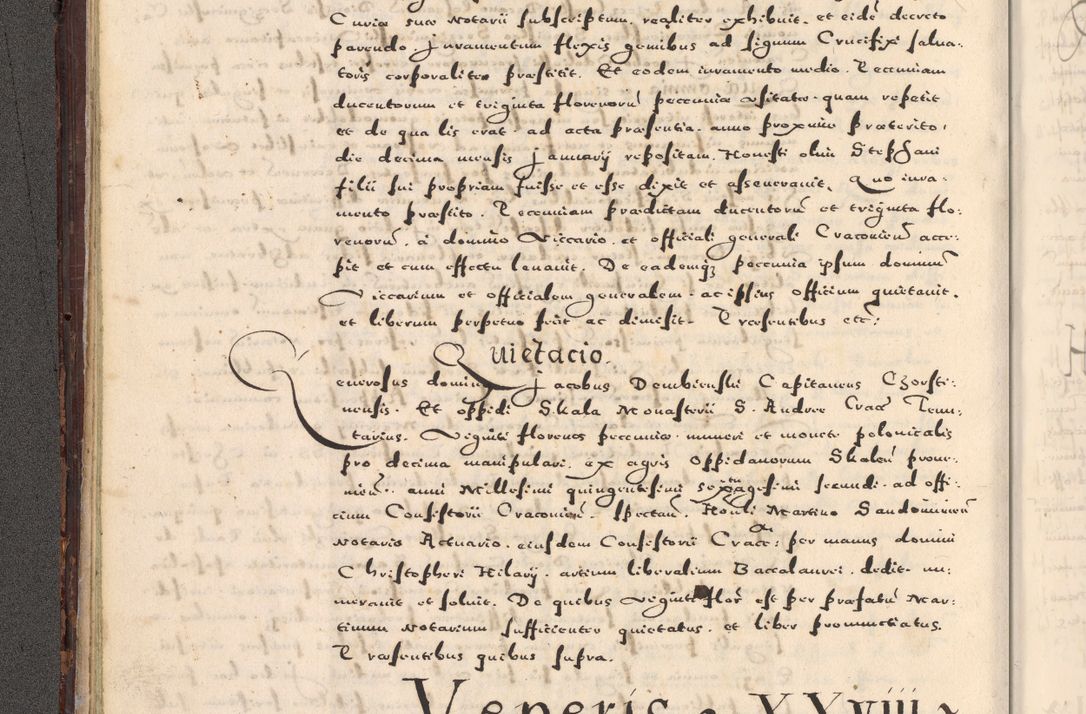 Curiæ suæ Notarii subscriptum. realiter exhibuit. et eidē decreto
parendo Juramentum flexis genibus ad signum Crucifixi salua-
toris corporaliter præstitit. Et eodem iuramento medio. Pecuniam
ducentorum et triginta florenorū pecuniæ usitatæ. quam repetit
et de qua lis erat. ad acta præsentia. anno proximo præterito,
die decima mensis Januarij repositam. Honesti olim Stephani
filii sui propriam fuisse et esse dixit et asseuerauit. Quo iura-
mento præstito. Pecuniam prædictam ducentorū et triginta flo-
renorū. à domino Viccario. et officiali generali Cracovieñ acce-
pit et cum effectu leuauit. De eademq; pecunia ipsum dominū
Viccarium et officialem generalem. ac ipsius officium quietauit.
et liberum perpetuo fecit ac dimisit. Præsentibus etc:
Quietacio.
Generosus dominus Jacobus Dembienski Capitaneus Czorsti-
nensis. Et oppidi Skala Monasterii S. Andree Crac Tenu-
tarius. Viginti florenos pecuniæ. numeri et monetæ polonicalis
pro decima manipulari. ex agris oppidanorum Skaleñ proue-
nieñ. anni Millesimi quingentesimi sexagesimi secundi. ad offi-
cium Consistorii Cracovieñ. spectañ. Honli Martino Sandomirieñ
Notario Actuario. eiusdem Consistorii Cracc: per manus domini
Christopheri Hilarij. artium liberalium Baccalaurei. dedit. nu-
merauit et soluit. De quibus viginti flor est per præfatū Mar-
tinum Notarium sufficienter quietatus. et liber pronunctiatus.
Præsentibus quibus supra.
Veneris XXviii